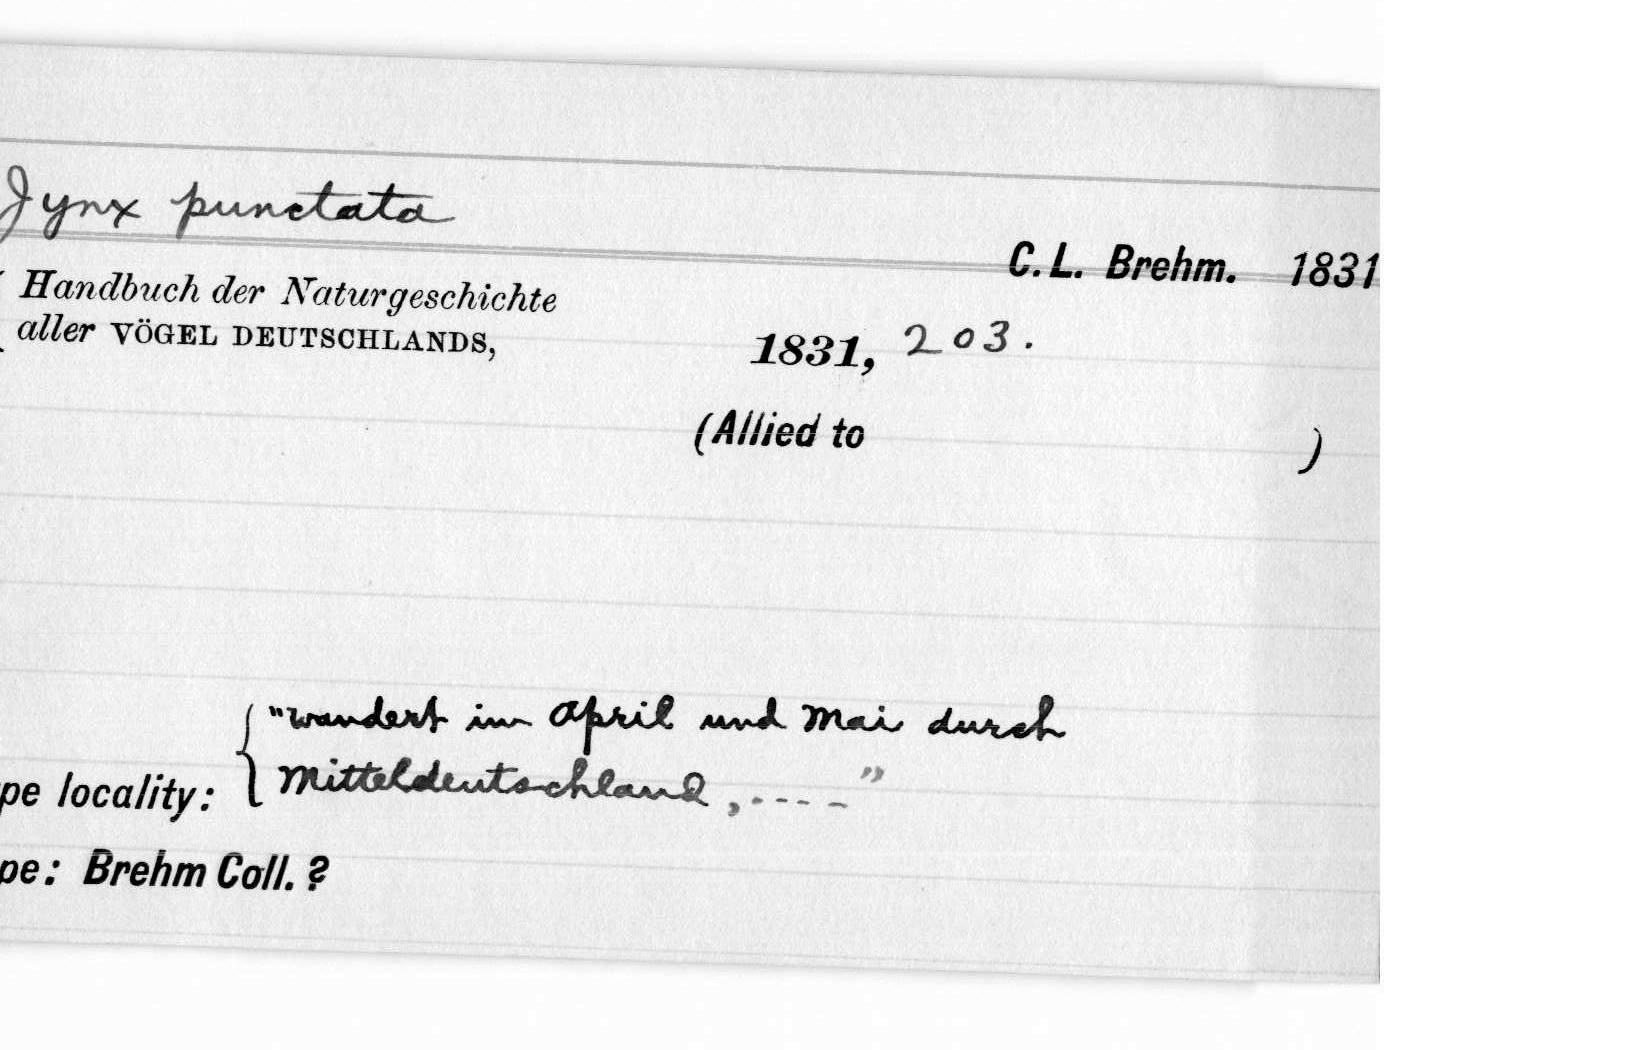 Jynx punctata
C. L. Brehm. 1831
Handbuch der Naturgeschichte
aller VÖGEL DEUTSCHLANDS,
1831, 203.
(Allied to )
"wandert im April und Mai durch
pe locality: Mitteldeutschland, ----"
pe: Brehm Coll. ?